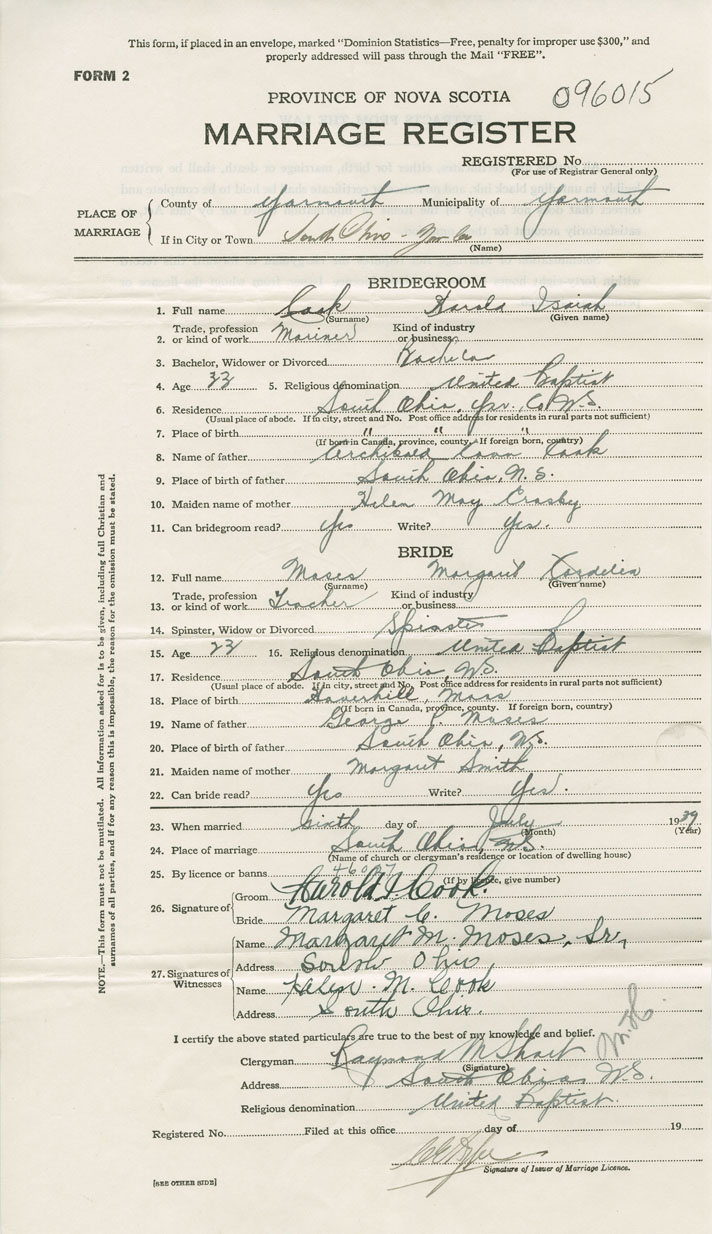 This form, if placed in an envelope, marked "Dominion Statistics—Free, penalty for improper use $300," and
properly addressed will pass through the Mail "FREE".
FORM 2
096015
PROVINCE OF NOVA SCOTIA
MARRIAGE REGISTER
REGISTERED No.
(For use of Registrar General only)
PLACE OF MARRIAGE
County of Yarmouth Municipality of Yarmouth
If in City or Town South Ohio - Yar Co
(Name)
BRIDEGROOM
1. Full name Cook Harold Isaiah
(Surname) (Given name)
2. Trade, profession or kind of work Mariner Kind of industry or business
3. Bachelor, Widower or Divorced Bachelor
4. Age 33 5. Religious denomination United Baptist
6. Residence South Ohio, Yar. Co. N.S.
(Usual place of abode. If in city, street and No. Post office address for residents in rural parts not sufficient)
7. Place of birth " " "
(If born in Canada, province, county. If foreign born, country)
8. Name of father Archibald Cook
9. Place of birth of father South Ohio, N.S.
10. Maiden name of mother Helen May Crosby
11. Can bridegroom read? Yes Write? Yes.
BRIDE
12. Full name Moses Margaret Cordelia
(Surname) (Given name)
13. Trade, profession or kind of work Teacher Kind of industry or business
14. Spinster, Widow or Divorced Spinster
15. Age 23 16. Religious denomination United Baptist
17. Residence South Ohio, N.S.
(Usual place of abode. If in city, street and No. Post office address for residents in rural parts not sufficient)
18. Place of birth Haverhill, Mass
(If born in Canada, province, county. If foreign born, country)
19. Name of father George Moses
20. Place of birth of father South Ohio, N.S.
21. Maiden name of mother Margaret Smith
22. Can bride read? Yes Write? Yes.
23. When married sixth day of July 1939
(Month) (Year)
24. Place of marriage South Ohio, N.S.
(Name of church or clergyman's residence or location of dwelling house)
25. By licence or banns
(If by licence, give number)
26. Signature of Groom Harold I. Cook.
Bride Margaret C. Moses
27. Signatures of Witnesses
Name Margaret M. Moses, Sr.,
Address South Ohio,
Name Helen M. Cook
Address South Ohio.
I certify the above stated particulars are true to the best of my knowledge and belief.
Clergyman Raymond M Short
(Signature)
Address South Ohio, N.S.
Religious denomination United Baptist.
Registered No. Filed at this office day of 19
Signature of Issuer of Marriage Licence.
[SEE OTHER SIDE]
NOTE.—This form must not be mutilated. All information asked for is to be given, including full Christian and
surnames of all parties, and if for any reason this is impossible, the reason for the omission must be stated.